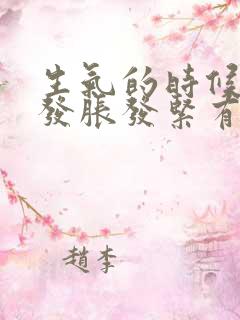 生氣的時候
發脹發緊有
趙李